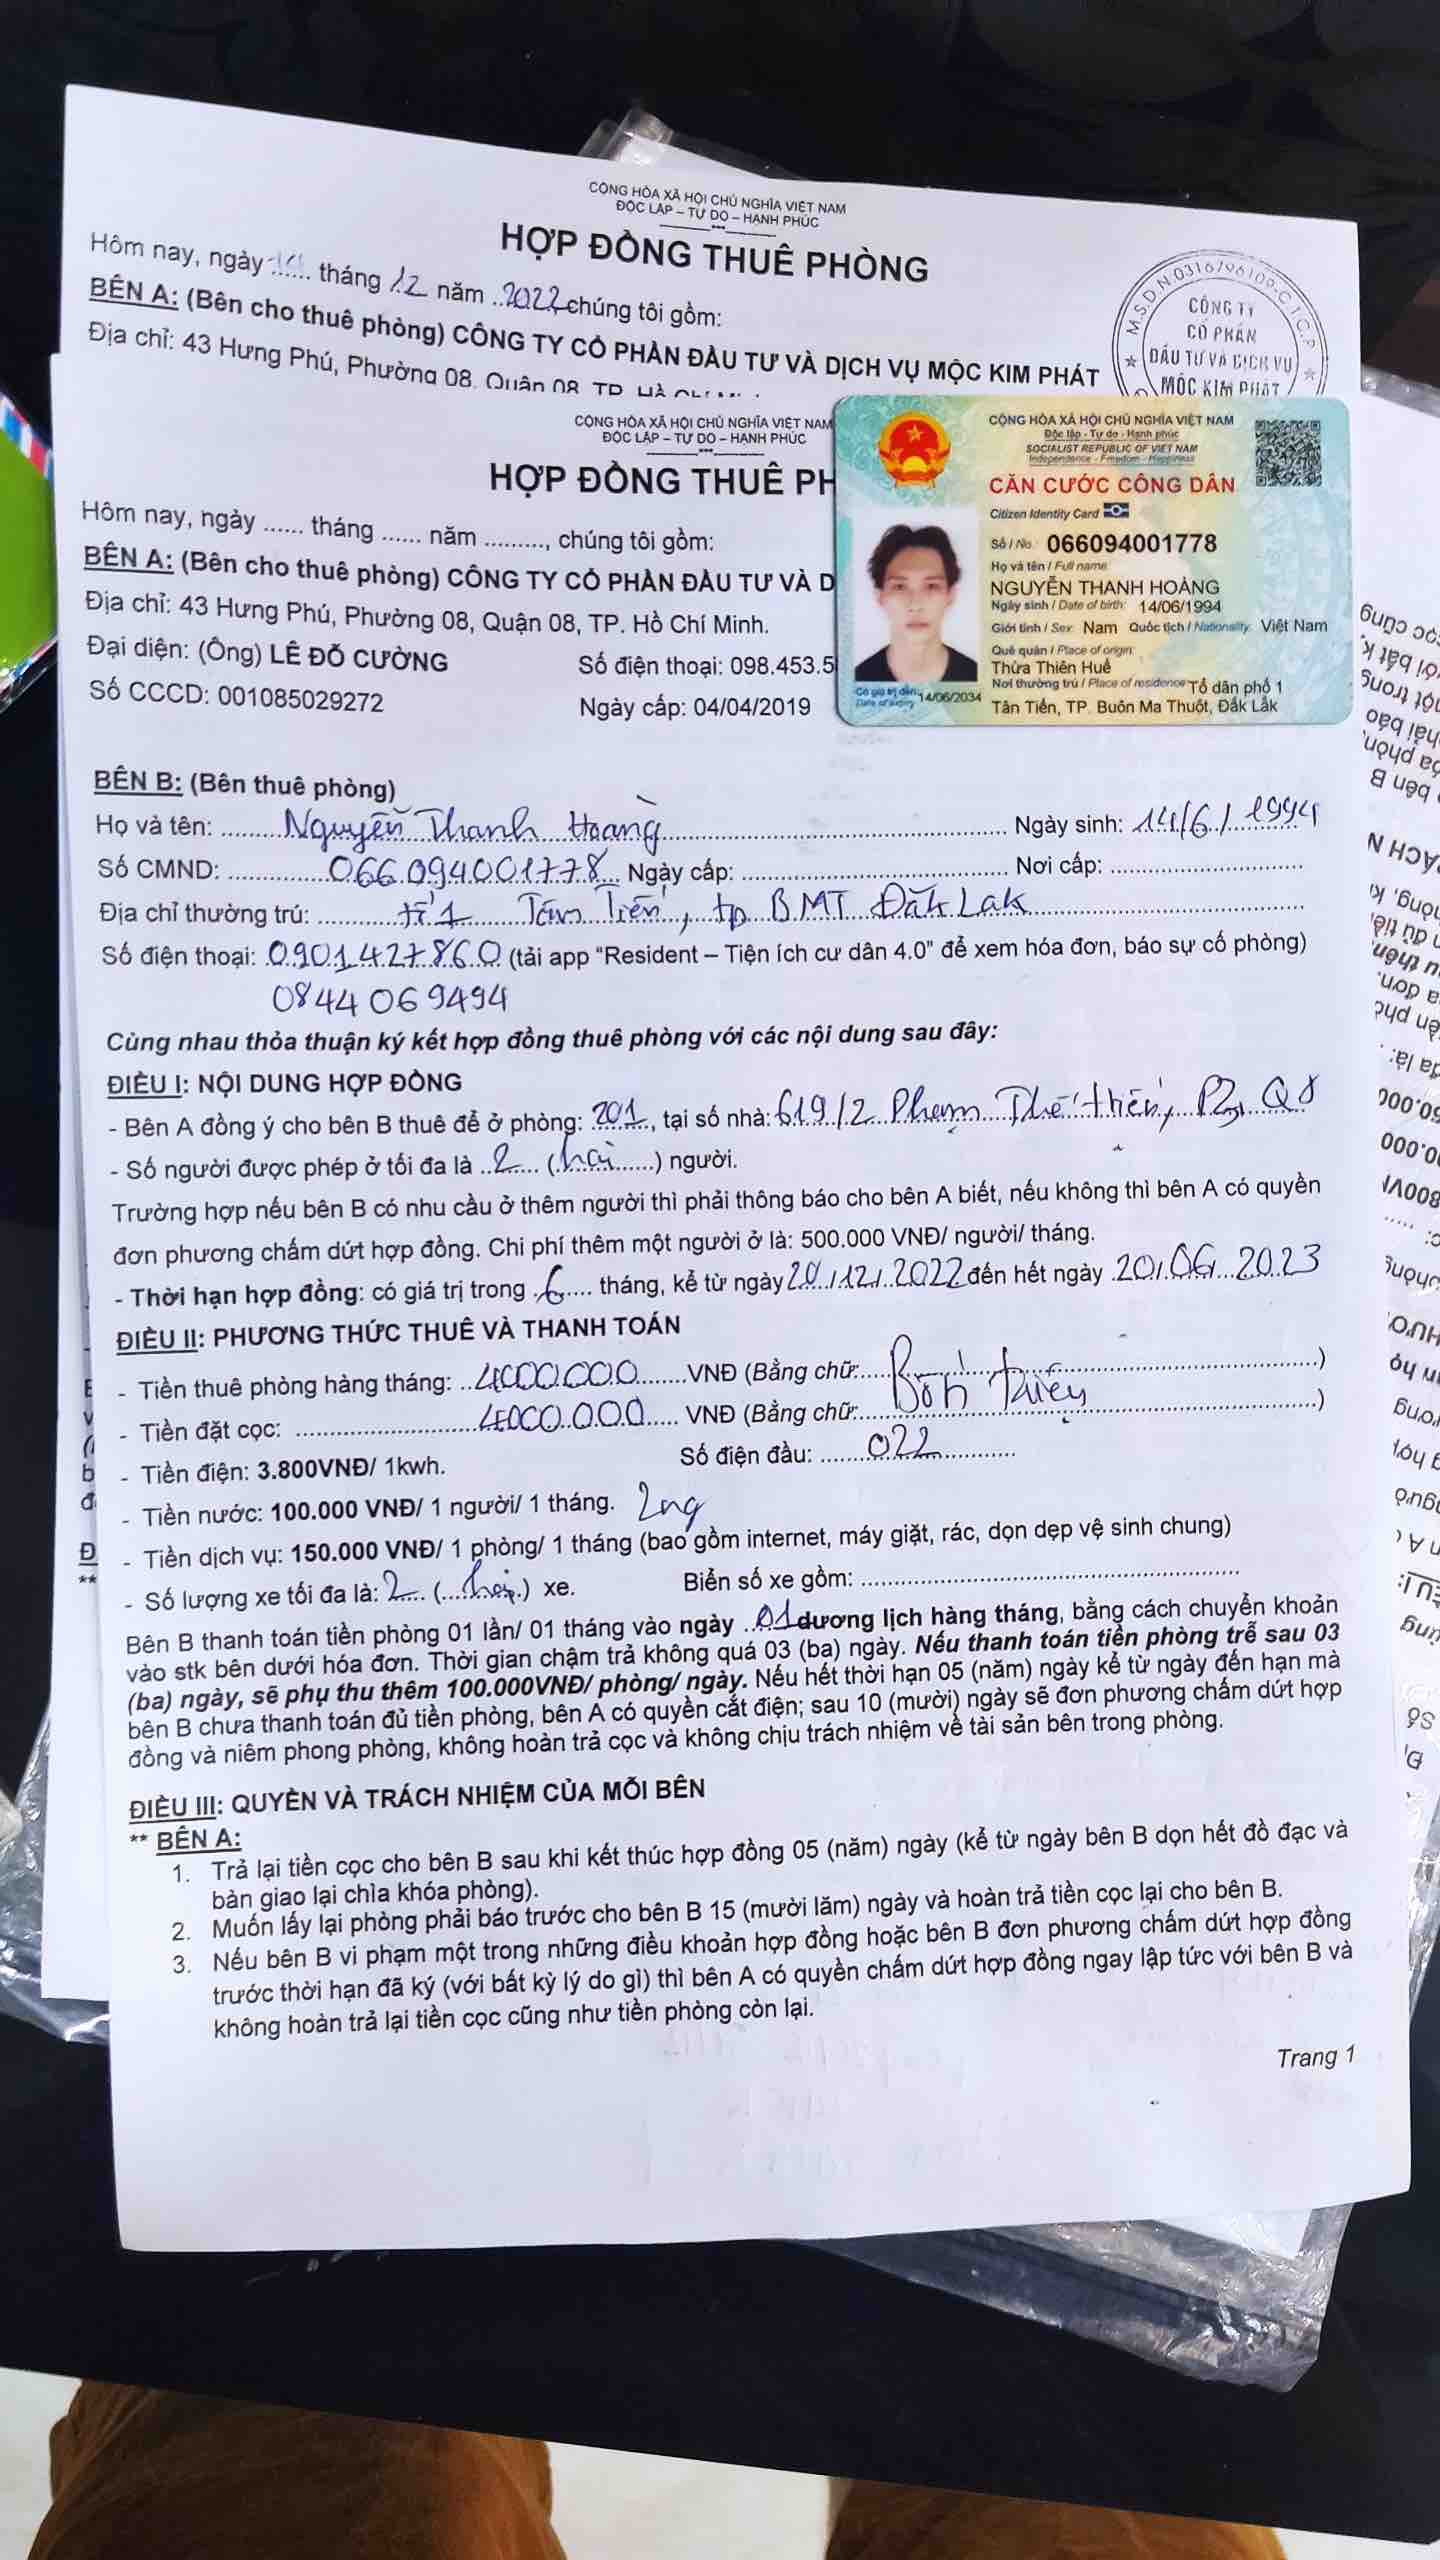 CỘNG HÒA XÃ HỘI CHỦ NGHĨA VIỆT NAM
ĐỘC LẬP – TỰ DO – HẠNH PHÚC
HỢP ĐỒNG THUÊ PHÒNG
Hôm nay, ngày ...... tháng 12 năm 2022 chúng tôi gồm:
BÊN A: (Bên cho thuê phòng) CÔNG TY CỔ PHẦN ĐẦU TƯ VÀ DỊCH VỤ MỘC KIM PHÁT
Địa chỉ: 43 Hưng Phú, Phường 08, Quận 08, TP. Hồ Chí Minh
M.S.D.N:0316796109-C.T.C.P
CÔNG TY
CỔ PHẦN
ĐẦU TƯ VÀ DỊCH VỤ
MỘC KIM PHÁT
CỘNG HÒA XÃ HỘI CHỦ NGHĨA VIỆT NAM
ĐỘC LẬP – TỰ DO – HẠNH PHÚC
HỢP ĐỒNG THUÊ PH
Hôm nay, ngày ...... tháng ...... năm ........., chúng tôi gồm:
BÊN A: (Bên cho thuê phòng) CÔNG TY CỔ PHẦN ĐẦU TƯ VÀ D
Địa chỉ: 43 Hưng Phú, Phường 08, Quận 08, TP. Hồ Chí Minh.
Đại diện: (Ông) LÊ ĐỖ CƯỜNG Số điện thoại: 098.453.5
Số CCCD: 001085029272 Ngày cấp: 04/04/2019
CỘNG HÒA XÃ HỘI CHỦ NGHĨA VIỆT NAM
Độc lập - Tự do - Hạnh phúc
SOCIALIST REPUBLIC OF VIET NAM
Independence - Freedom - Happiness
CĂN CƯỚC CÔNG DÂN
Citizen Identity Card
Số / No.: 066094001778
Họ và tên / Full name:
NGUYỄN THANH HOÀNG
Ngày sinh / Date of birth: 14/06/1994
Giới tính / Sex: Nam Quốc tịch / Nationality: Việt Nam
Quê quán / Place of origin:
Thừa Thiên Huế
Nơi thường trú / Place of residence: Tổ dân phố 1
Tân Tiến, TP. Buôn Ma Thuột, Đắk Lắk
Có giá trị đến: 14/06/2034
Date of expiry
BÊN B: (Bên thuê phòng)
Họ và tên: Nguyễn Thanh Hoàng Ngày sinh: 14/6/1994
Số CMND: 066094001778 Ngày cấp: Nơi cấp:
Địa chỉ thường trú: tổ 1 Tân Tiến, tp BMT Đăk Lak
Số điện thoại: 0901427860 (tải app “Resident – Tiện ích cư dân 4.0” để xem hóa đơn, báo sự cố phòng)
0844069494
Cùng nhau thỏa thuận ký kết hợp đồng thuê phòng với các nội dung sau đây:
ĐIỀU I: NỘI DUNG HỢP ĐỒNG
- Bên A đồng ý cho bên B thuê để ở phòng: 201, tại số nhà: 619/2 Phạm Thế Hiển, P3, Q8
- Số người được phép ở tối đa là 2 (hai) người.
Trường hợp nếu bên B có nhu cầu ở thêm người thì phải thông báo cho bên A biết, nếu không thì bên A có quyền
đơn phương chấm dứt hợp đồng. Chi phí thêm một người ở là: 500.000 VNĐ/ người/ tháng.
- Thời hạn hợp đồng: có giá trị trong 6 tháng, kể từ ngày 20/12/2022 đến hết ngày 20/06/2023
ĐIỀU II: PHƯƠNG THỨC THUÊ VÀ THANH TOÁN
- Tiền thuê phòng hàng tháng: 4000.000 VNĐ (Bằng chữ: Bốn triệu)
- Tiền đặt cọc: 4000.000 VNĐ (Bằng chữ: )
- Tiền điện: 3.800VNĐ/ 1kwh. Số điện đầu: 022
- Tiền nước: 100.000 VNĐ/ 1 người/ 1 tháng. 2ng
- Tiền dịch vụ: 150.000 VNĐ/ 1 phòng/ 1 tháng (bao gồm internet, máy giặt, rác, dọn dẹp vệ sinh chung)
- Số lượng xe tối đa là: 2 (hai) xe. Biển số xe gồm:
Bên B thanh toán tiền phòng 01 lần/ 01 tháng vào ngày 01 dương lịch hàng tháng, bằng cách chuyển khoản
vào stk bên dưới hóa đơn. Thời gian chậm trả không quá 03 (ba) ngày. Nếu thanh toán tiền phòng trễ sau 03
(ba) ngày, sẽ phụ thu thêm 100.000VNĐ/ phòng/ ngày. Nếu hết thời hạn 05 (năm) ngày kể từ ngày đến hạn mà
bên B chưa thanh toán đủ tiền phòng, bên A có quyền cắt điện; sau 10 (mười) ngày sẽ đơn phương chấm dứt hợp
đồng và niêm phong phòng, không hoàn trả cọc và không chịu trách nhiệm về tài sản bên trong phòng.
ĐIỀU III: QUYỀN VÀ TRÁCH NHIỆM CỦA MỖI BÊN
** BÊN A:
1. Trả lại tiền cọc cho bên B sau khi kết thúc hợp đồng 05 (năm) ngày (kể từ ngày bên B dọn hết đồ đạc và
bàn giao lại chìa khóa phòng).
2. Muốn lấy lại phòng phải báo trước cho bên B 15 (mười lăm) ngày và hoàn trả tiền cọc lại cho bên B.
3. Nếu bên B vi phạm một trong những điều khoản hợp đồng hoặc bên B đơn phương chấm dứt hợp đồng
trước thời hạn đã ký (với bất kỳ lý do gì) thì bên A có quyền chấm dứt hợp đồng ngay lập tức với bên B và
không hoàn trả lại tiền cọc cũng như tiền phòng còn lại.
Trang 1